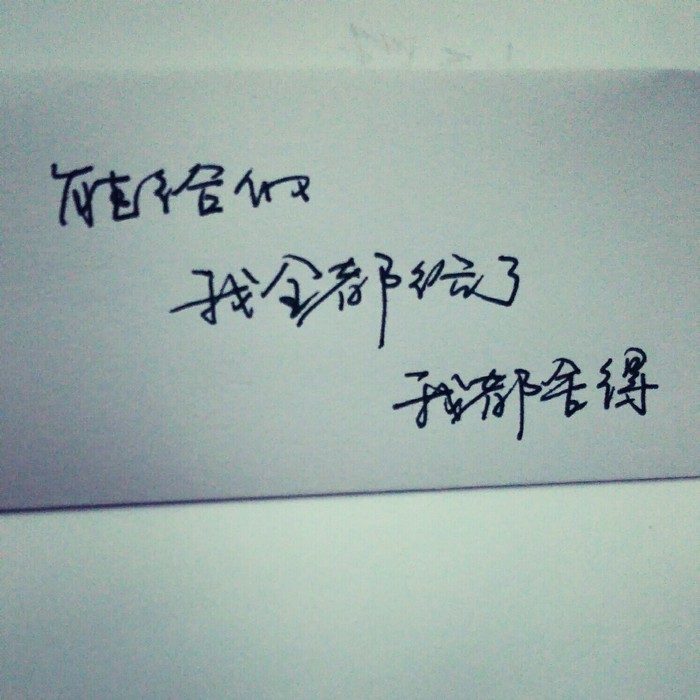 能给的
我全都给了
我都舍得